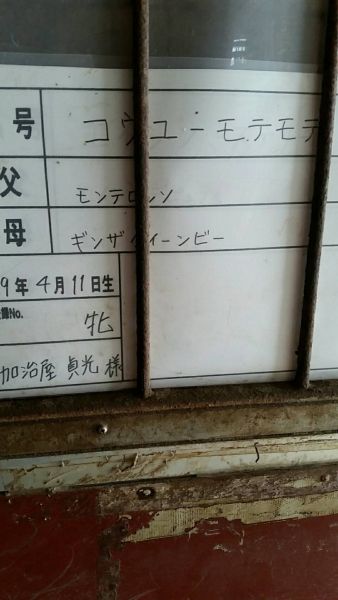 号 コウユーモテモテ
父 モンテロッソ
母 ギンザクイーンビー
9年4月11日生
録No. 牝
加治屋 貞光 様